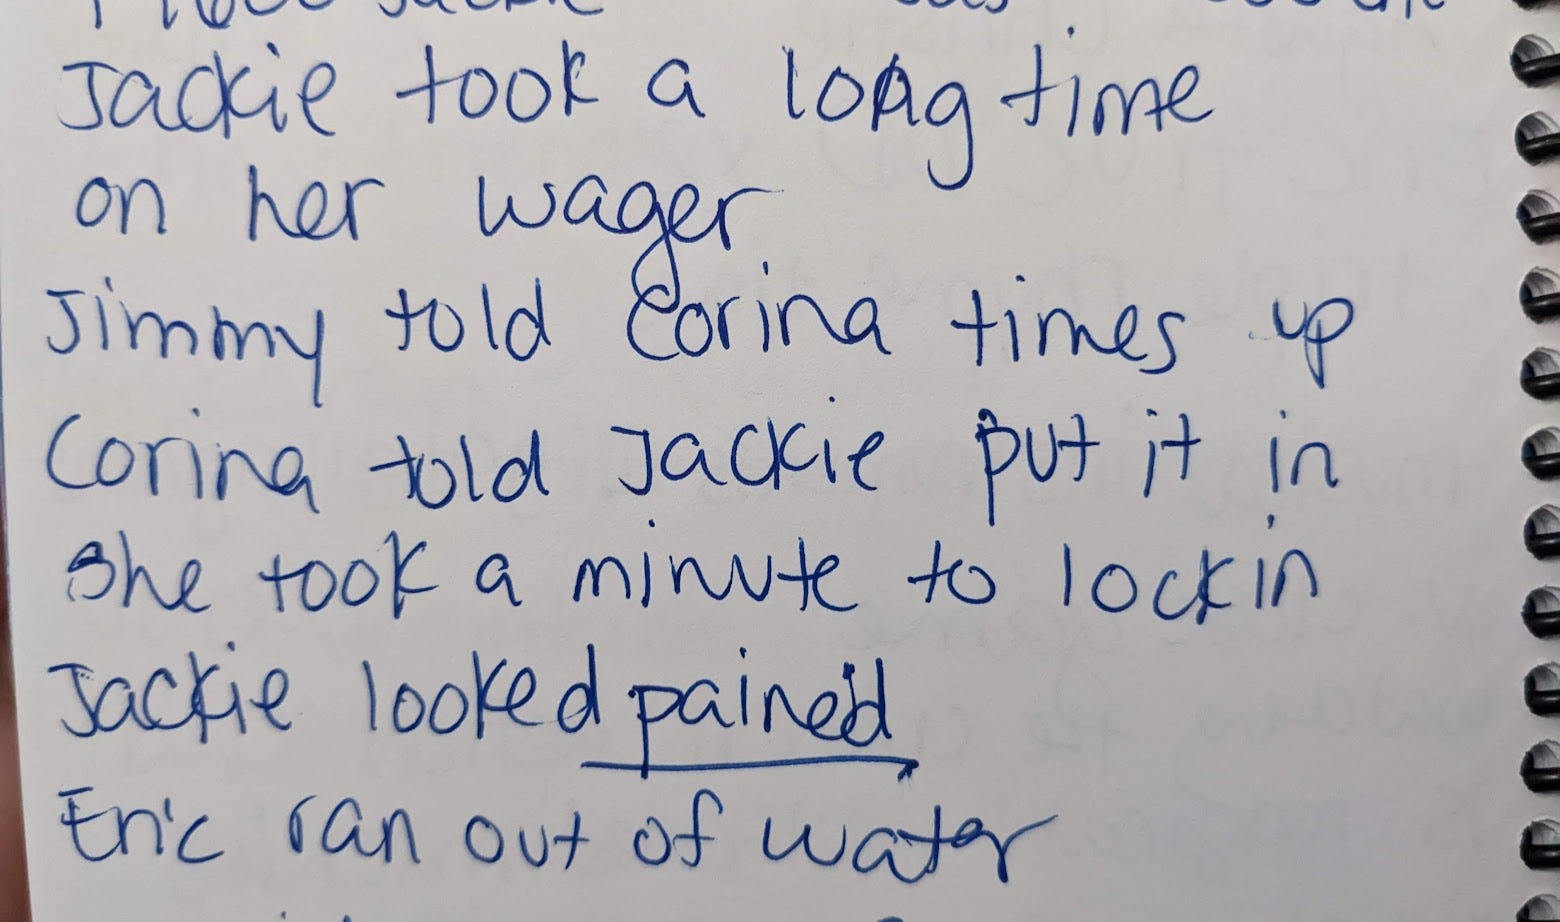 Jackie took a long time
on her wager
Jimmy told Corina times up
Corina told Jackie put it in
She took a minute to lock in
Jackie looked pained
Eric ran out of water